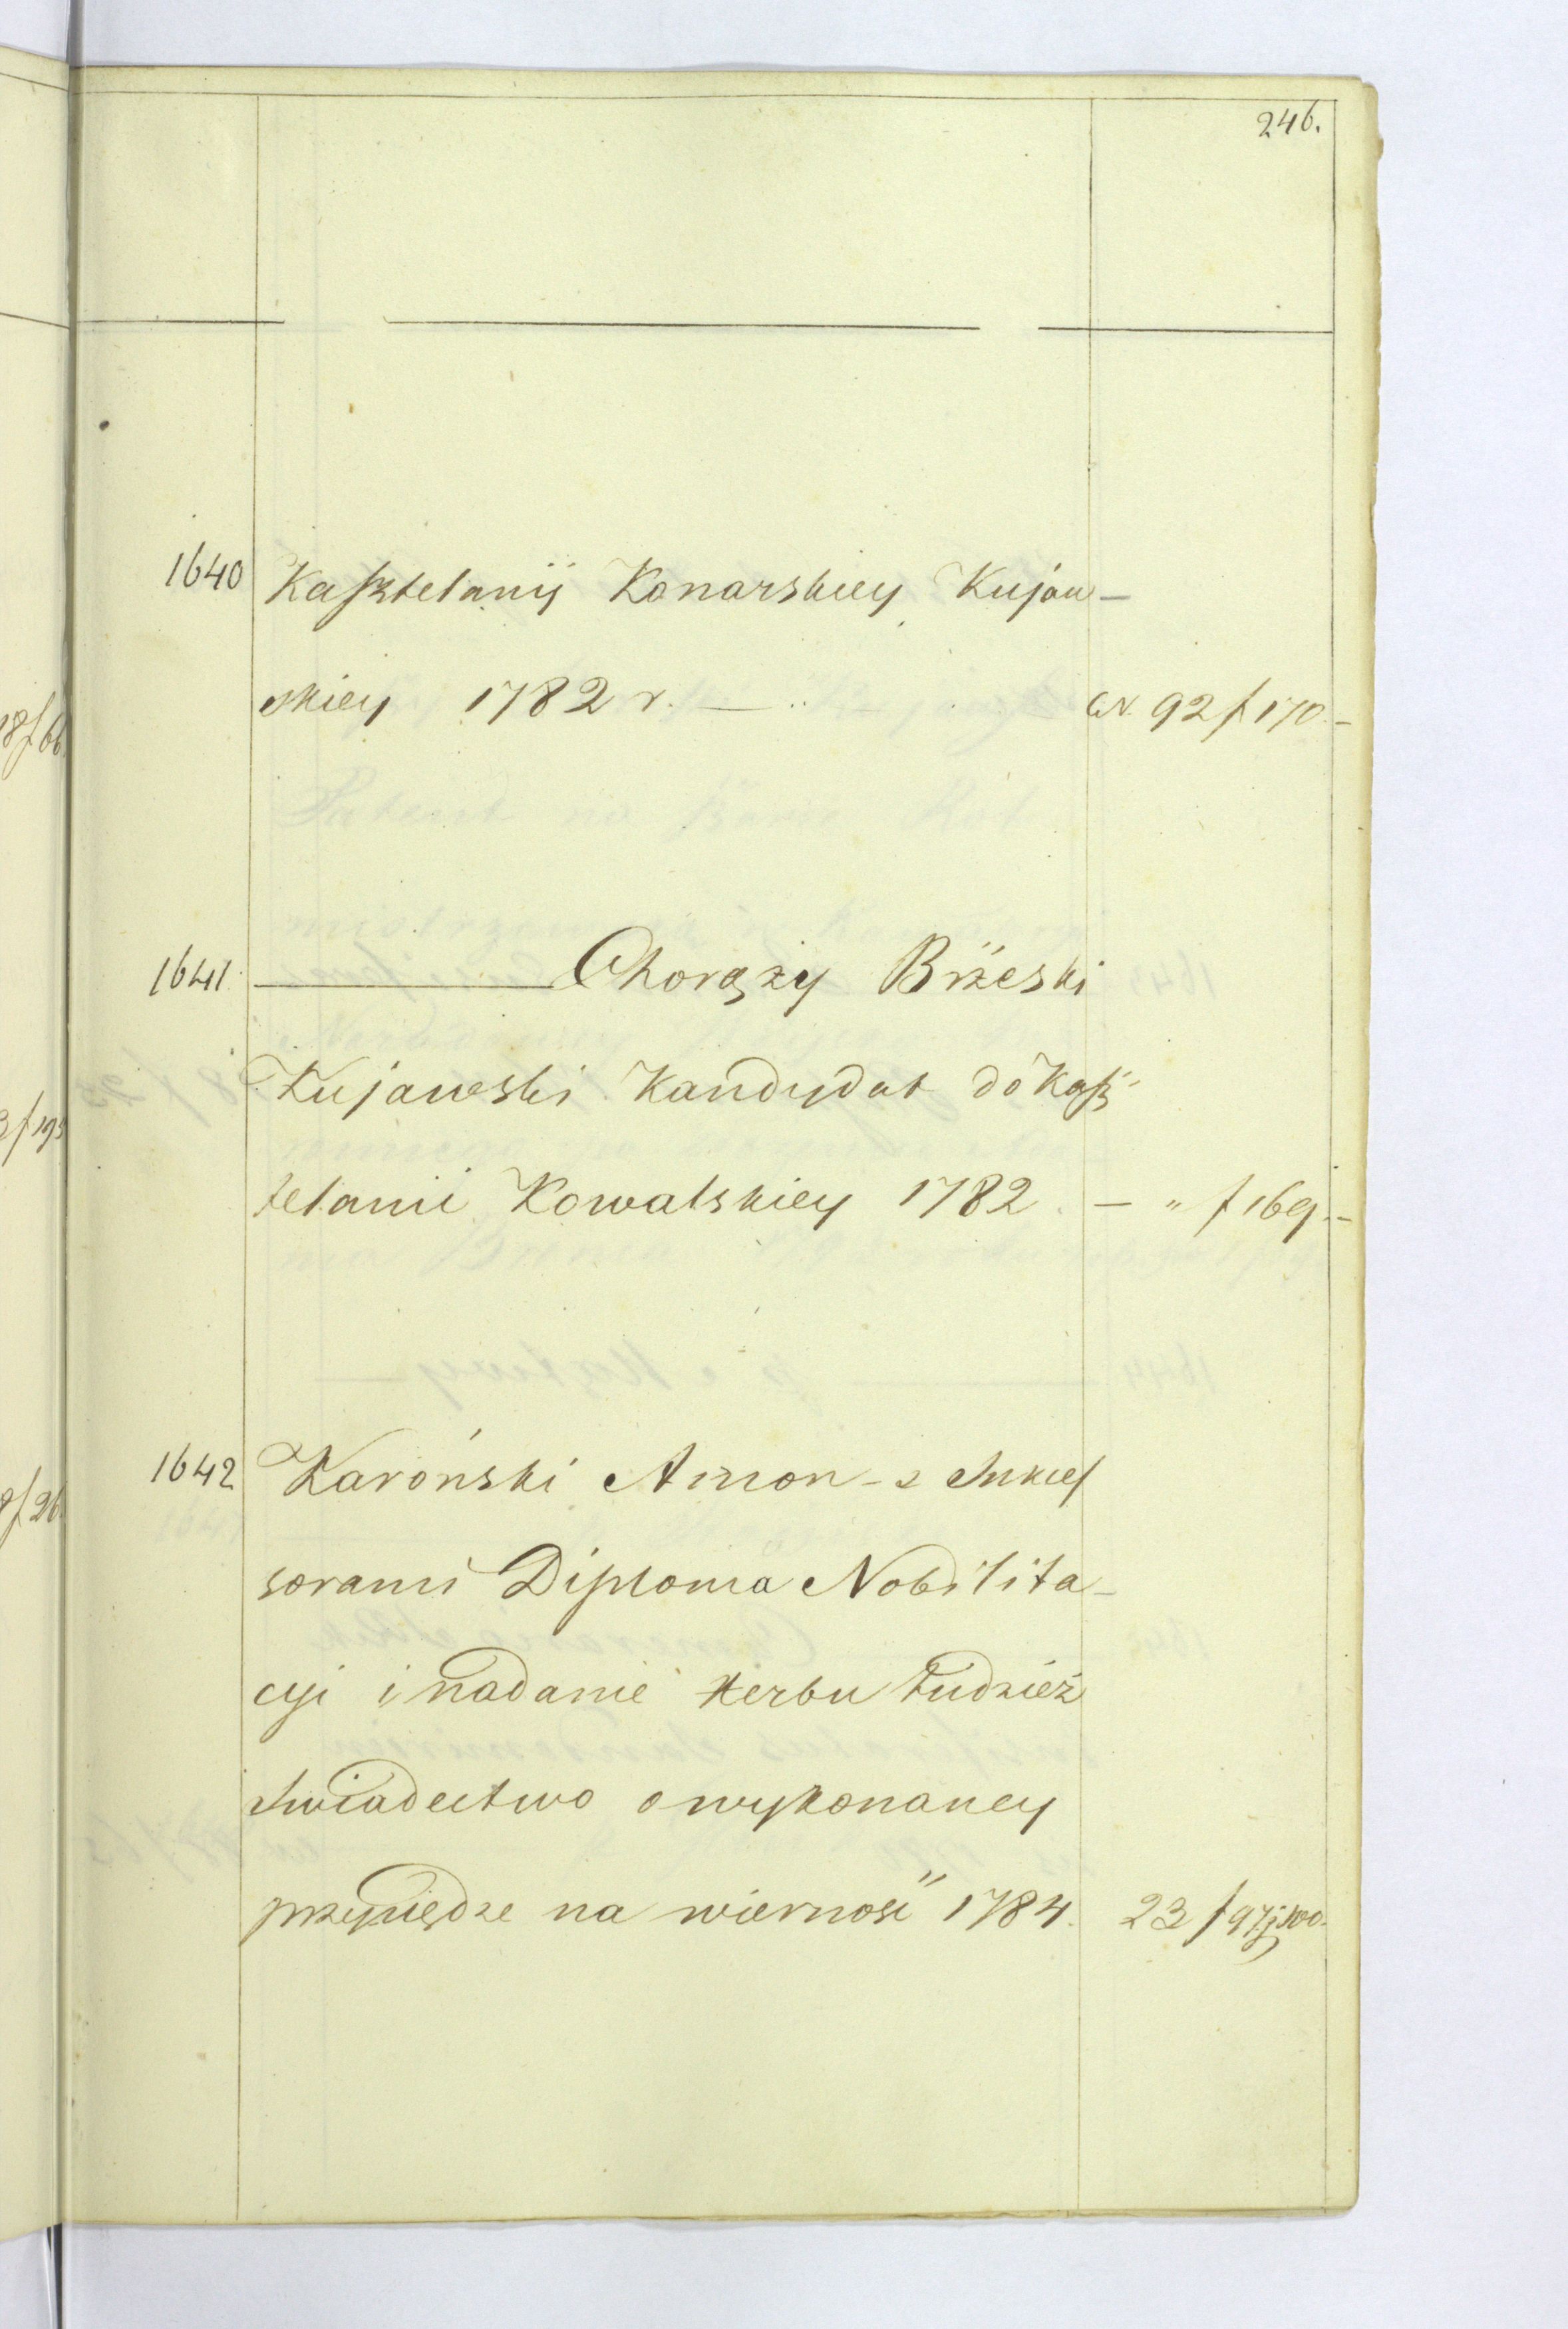 246.
1640 Kasztelanij Konarskiey Kujaw-
skiey 1782 r. — N. 92 f 170.-
1641. ——— Chorąży Brzeski
Kujawski Kandydat do Kasz-
telanii Kowalskiey 1782. — " f 169.-
1642 Karoński Amon - z Sukces
sorami Diploma Nobilita-
cyi i nadanie Herbu tudzież
Swiadectwo o wykonaney
przysiędze na wierność 1784. 23 f 97 j 100.
18 f 66.
f 193
f 26.